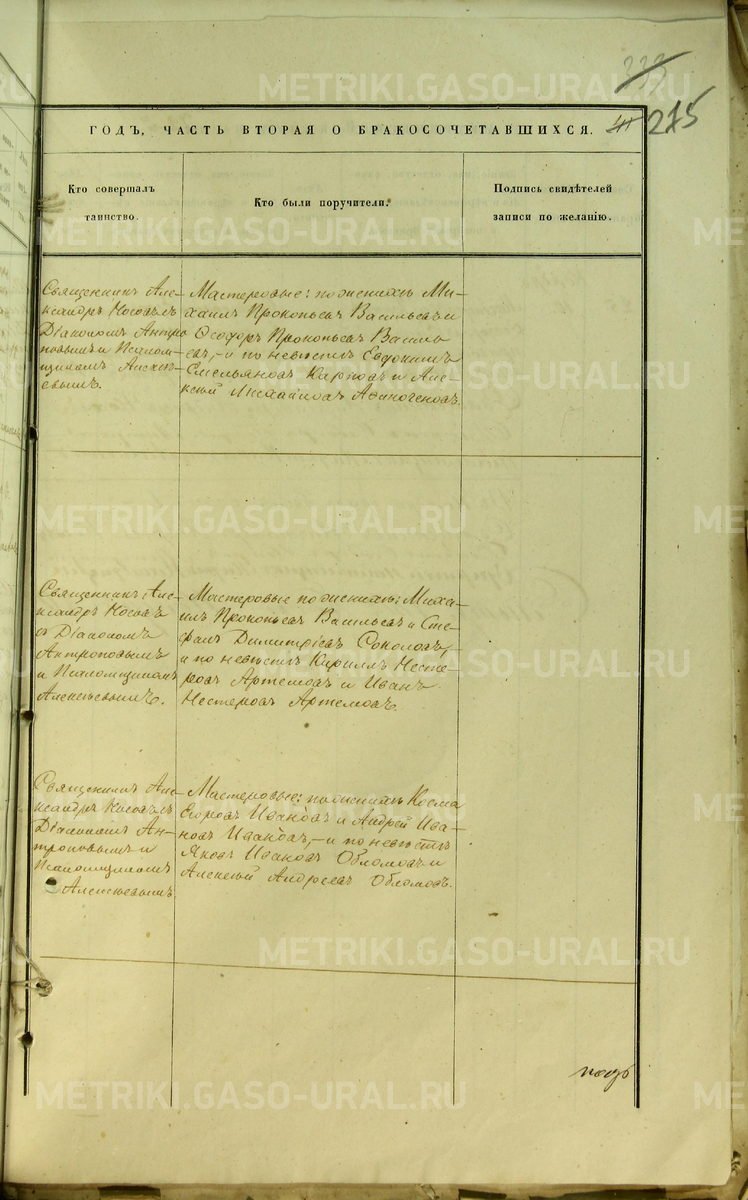 333
41 275
ГОДЪ, ЧАСТЬ ВТОРАЯ О БРАКОСОЧЕТАВШИХСЯ.
Кто совершалъ
таинство.
Кто были поручители.
Подпись свидѣтелей
записи по желанію.
Священникъ Але-
ксандръ Носовъ съ
Діакономъ Антро
повымъ и Псалом-
щикомъ Алексѣ-
евымъ.
Мастеровые: по женихѣ Ми-
хаилъ Прокопьевъ Васильевъ и
Ѳеодоръ Прокопьевъ Василь
евъ, - и по невѣстѣ Евдокимъ
Емельяновъ Карповъ и Але-
ксѣй Михайловъ Аѳиногеновъ.
Священникъ Але-
ксандръ Носовъ
съ Діакономъ
Антроповымъ
и Псаломщикомъ
Алексѣевымъ.
Мастеровые по женихѣ: Миха-
илъ Прокопьевъ Васильевъ и Сте-
фанъ Димитріевъ Соколовъ,
и по невѣстѣ Кириллъ Несте-
ровъ Артемовъ и Иванъ
Нестеровъ Артемовъ.
Священникъ Але-
ксандръ Носовъ съ
Діакономъ Ан-
троповымъ и
Псаломщикомъ
Алексѣевымъ
Мастеровые: по женихѣ Косма
Егоровъ Ивановъ и Андрей Ива-
новъ Ивановъ, - и по невѣстѣ
Яковъ Ивановъ Обломовъ и
Алексѣй Андреевъ Обломовъ.
METRIKI.GASO-URAL.RU